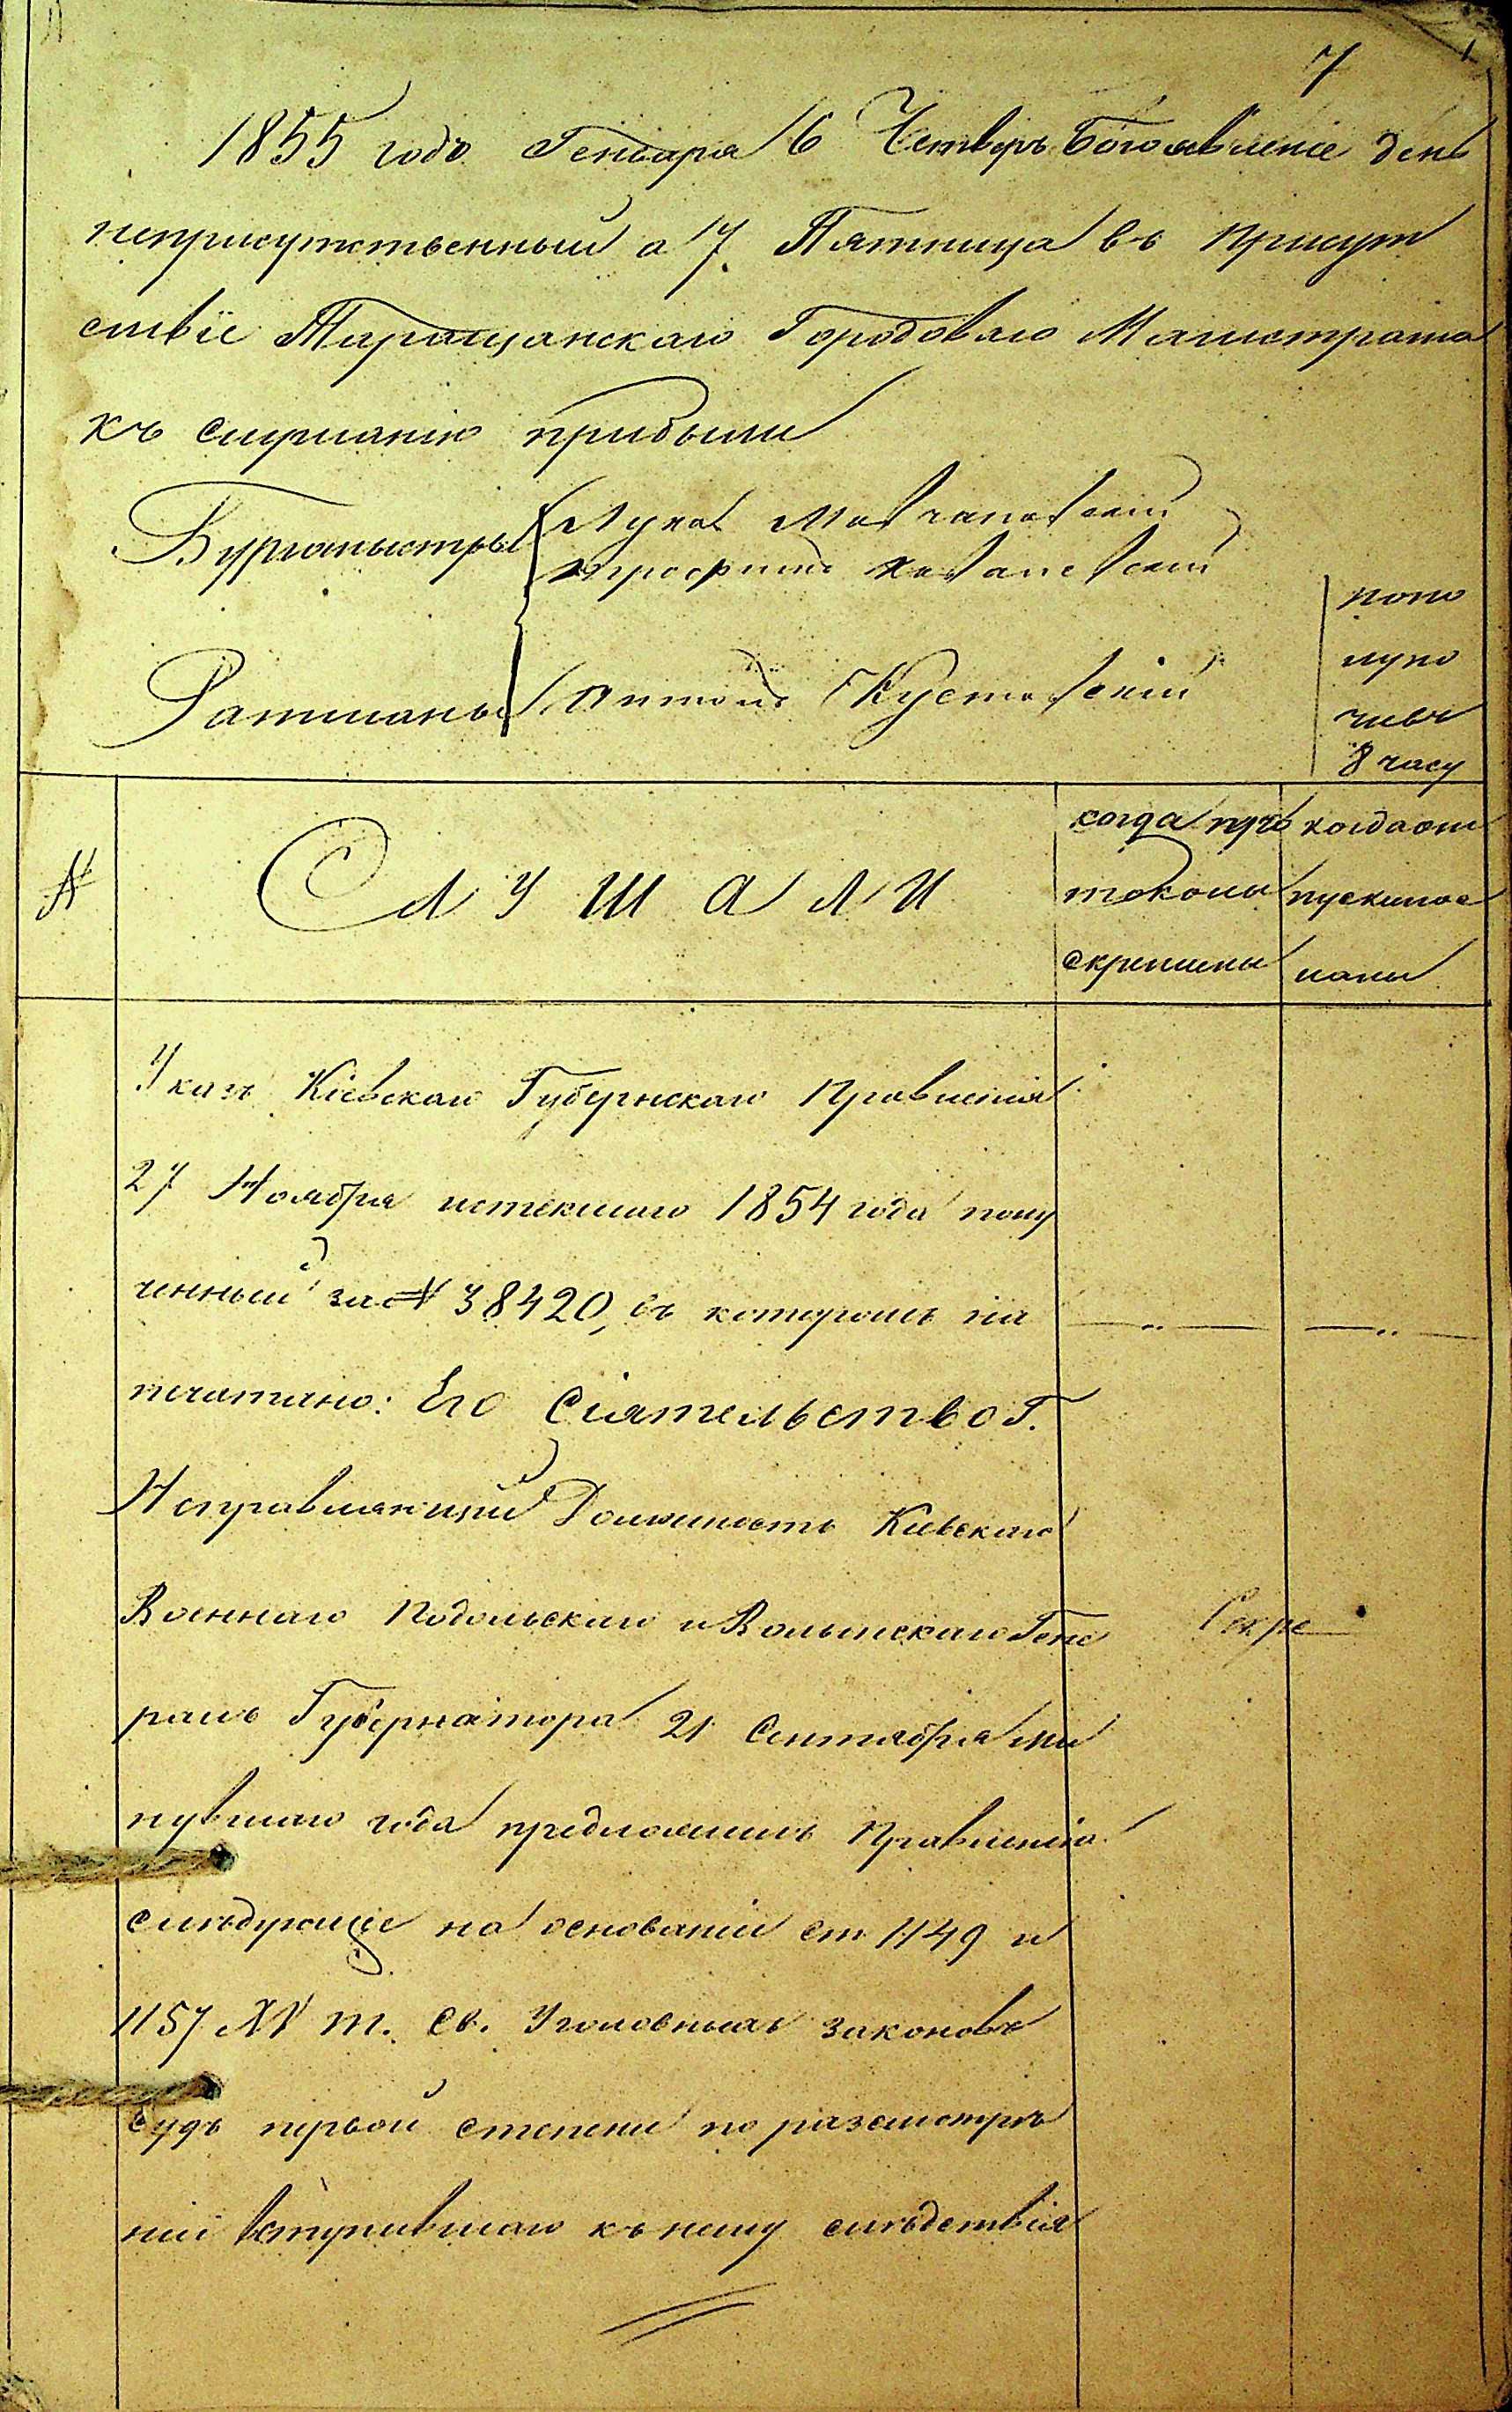 7
1855 годъ Генваря 6 Четверъ Богоявленіе день
неприсутственный а 7. Пятница въ присут
ствіе Таращанскаго Городоваго Магистрата
къ слушанію прибыли
Бургомистры Лука
Ратманы Антонъ Кустовскій
попо
луно
чивъ
8 часу
№
СЛУШАЛИ
когда про
токолы
скреплены
когда от
пуск
Указъ Кіевскаго Губернскаго Правленія
27 Ноября истекшаго 1854 года полу
ченный за № 38420, въ которомъ на
печатано: Его Сіятельство Г.
Исправляющій Должность Кіевскаго
Военнаго Подольскаго и Волынскаго Гене
ралъ Губернатора 21 Сентября ми
нувшаго года предложилъ Правленію
слѣдующее на основаніи ст. 1149 и
1157 XV т. Св. Уголовныхъ законовъ
Судъ первой степени по разсмотрѣ
ніи вступившаго къ нему слѣдствія
Секре